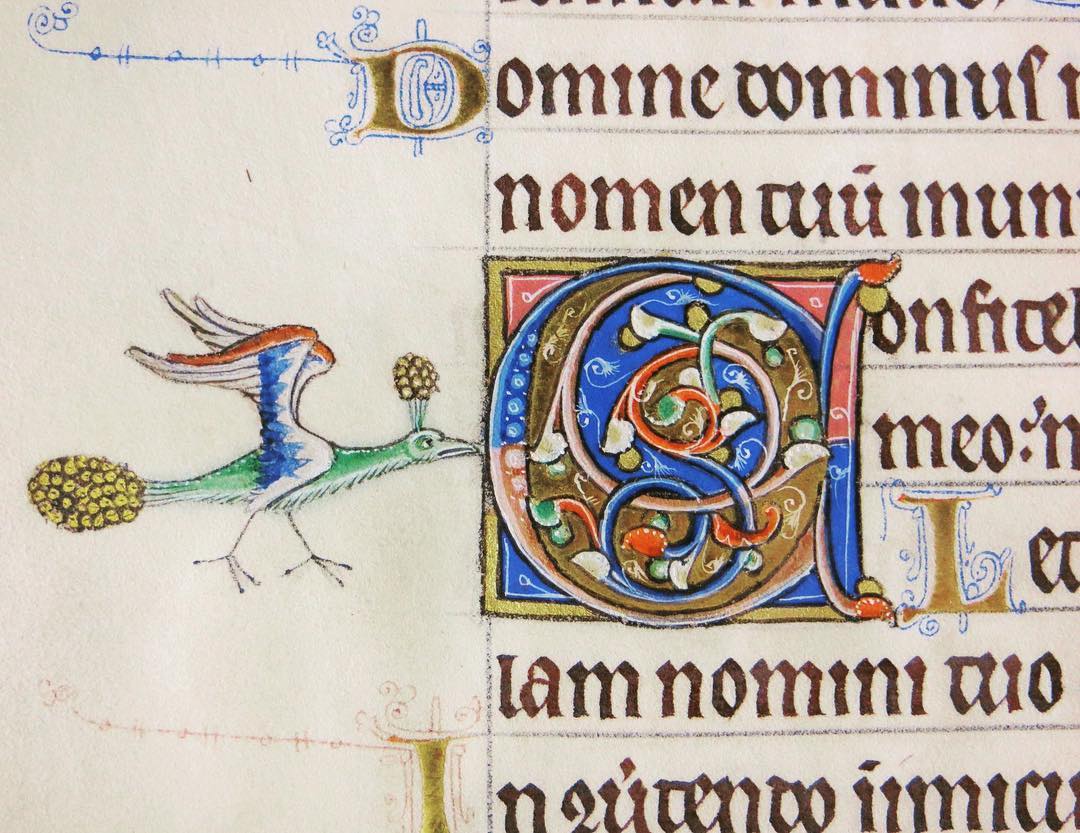 Domine dominuſ
nomen tuū in uni
Confiteb
meo:
L et
lam nomini tuo
In ꝯūtendo inimicu